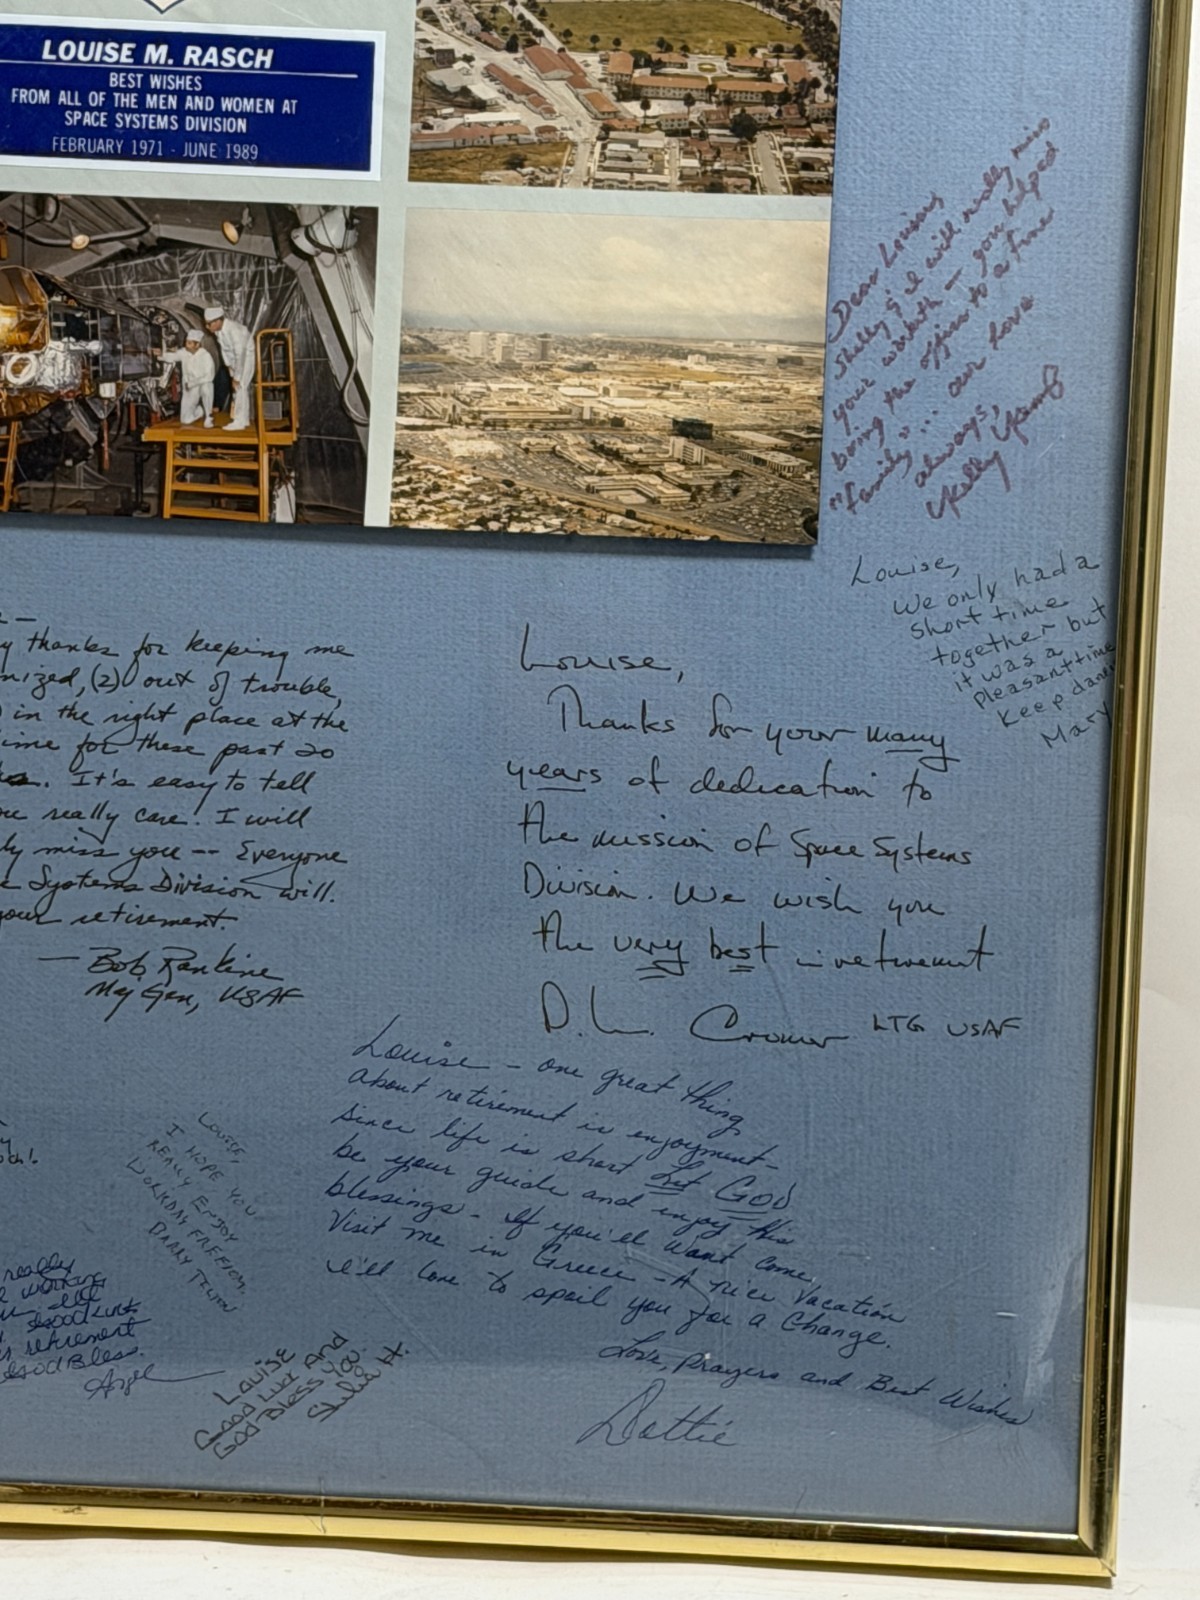 LOUISE M. RASCH
BEST WISHES
FROM ALL OF THE MEN AND WOMEN AT
SPACE SYSTEMS DIVISION
FEBRUARY 1971 - JUNE 1989
Dear
Shelly & I will really miss
your warmth — you helped
bring the office to a fine
"family" ... our love
always,
Kelly
Louise,
We only had a
short time
together but
it was a
pleasant time
Keep
Mary
thanks for keeping me
nized, (2) out of trouble,
in the right place at the
ime for these past 20
It's easy to tell
really care! I will
ly miss you -- Everyone
Systems Division will.
your retirement.
— Bob Rankine
Maj Gen, USAF
Louise,
Thanks for your many
years of dedication to
the mission of Space Systems
Division. We wish you
the very best in retirement
D. L. Cromer LTG USAF
Louise - one great thing
about retirement is enjoyment-
Since life is short Let GOD
be your guide and enjoy His
blessings - If you'll want come
Visit me in Greece - A nice vacation
I'll love to spoil you for a change.
Love, Prayers and Best Wishes
Dottie
LOUISE,
I HOPE YOU
REALLY ENJOY
WORKDAY FREEDOM.
really
working
Good luck
retirement
God Bless.
Angel
Louise
Good Luck And
God Bless You.
Sheila H.